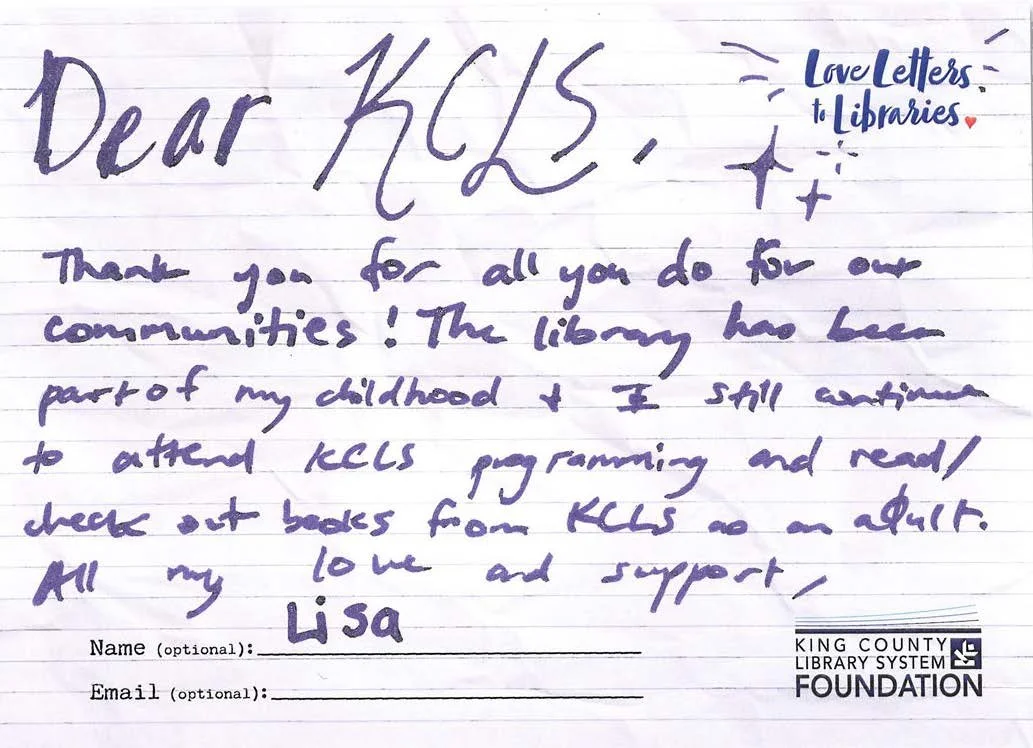 Dear KCLS,
Love Letters
to Libraries.
Thank you for all you do for our
communities! The library has been
part of my childhood + I still continue
to attend KCLS programming and read/
check out books from KCLS as an adult.
All my love and support,
Lisa
Name (optional):
Email (optional):
KING COUNTY
LIBRARY SYSTEM
FOUNDATION